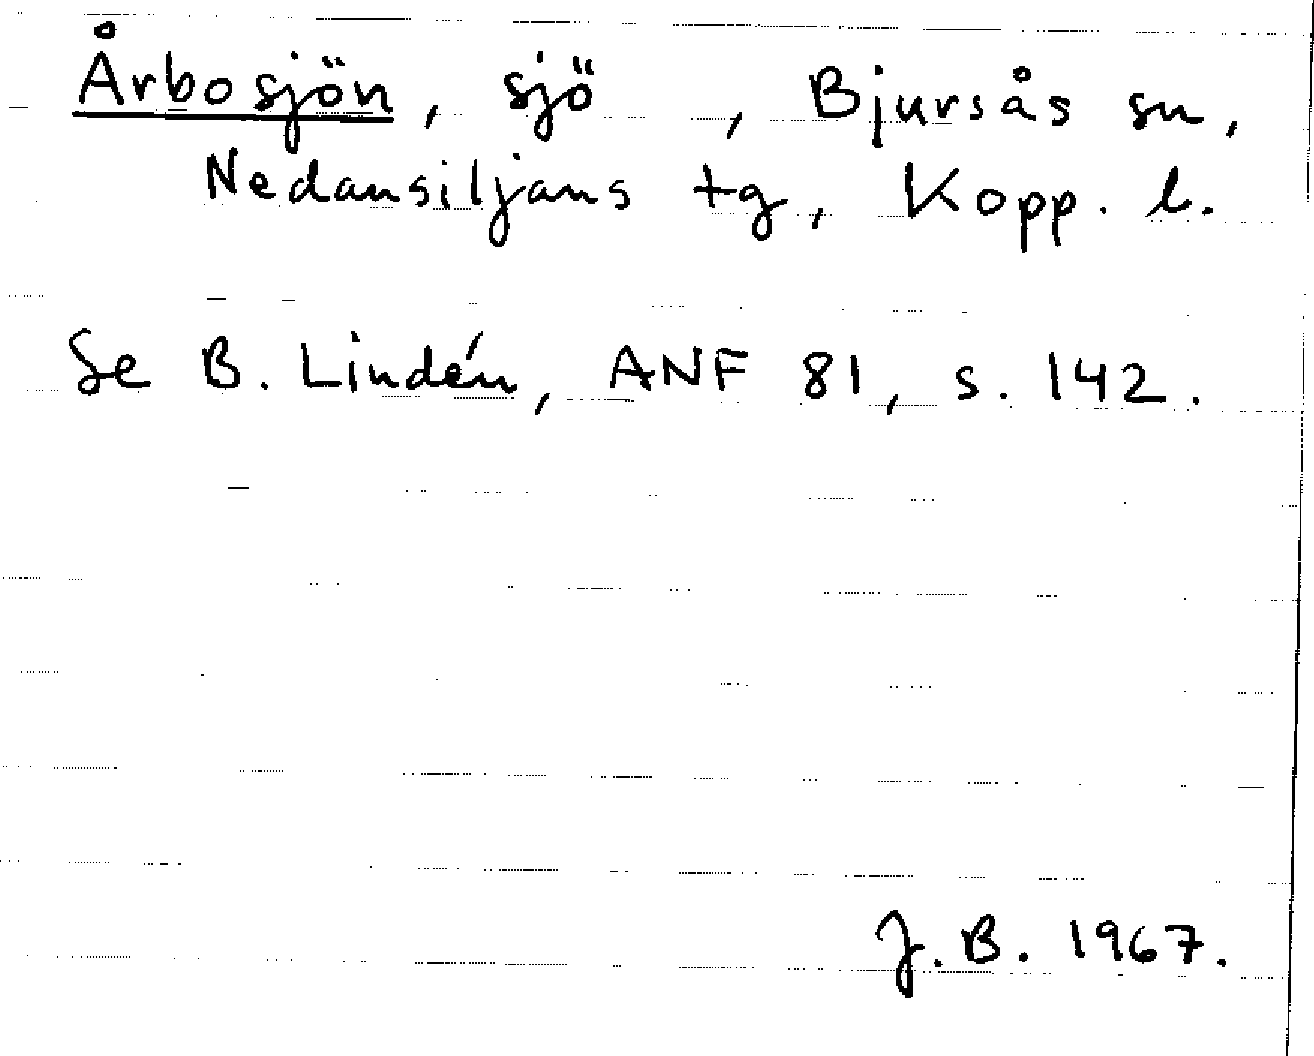 Årbosjön, sjö, Bjursås sn,
Nedansiljans tg, Kopp. l.
Se B. Lindén, ANF 81, s. 142.
J.B. 1967.